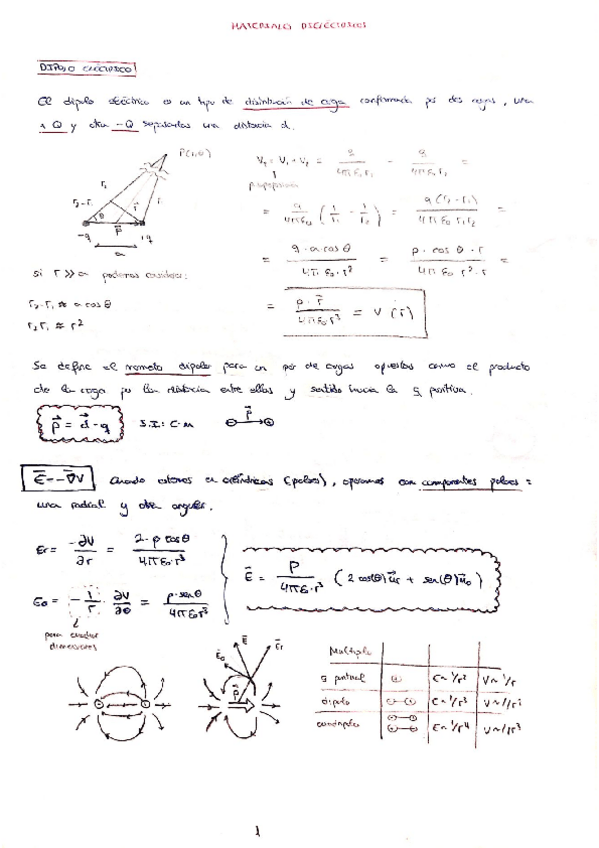 MATERIALES DIELÉCTRICOS
DIPOLO ELÉCTRICO
El dipolo eléctrico es un tipo de distribución de carga conformada por dos cargas, una
+Q y otra -Q separadas una distancia d.
P(r,θ)
r₂
r₂-r₁
r₁
r⃗
θ
p⃗
-q
+q
a
V_T = V₁ + V₂ = q/4πε₀r₁ - q/4πε₀r₂ =
= q/4πε₀ (1/r₁ - 1/r₂) = q(r₂-r₁)/4πε₀ r₁r₂ =
= q·a·cosθ/4πε₀·r² = p·cosθ·r/4πε₀ r²·r =
= p·r⃗/4πε₀r³ = V(r⃗)
si r >> a podemos considerar:
r₂-r₁ ≈ a cosθ
r₂r₁ ≈ r²
Se define el momento dipolar para un par de cargas opuestas como el producto
de la carga por la distancia entre ellas y sentido hacia la q positiva.
p⃗ = d⃗·q
S.I: C·m
p⃗
E⃗ = -∇⃗V
Cuando estamos en cilíndricas (polares), operamos con componentes polares:
una radial y otra angular.
Er = -∂V/∂r = 2·p cosθ/4πε₀·r³
Eθ = -1/r · ∂V/∂θ = p·senθ/4πε₀r³
E⃗ = P/4πε₀·r³ (2cos(θ)u⃗r + sen(θ)u⃗θ)
para cuadrar
dimensiones
E⃗
Er
Eθ
p⃗
Multipolo
q puntual E~1/r² V~1/r
dipolo E~1/r³ V~1/r²
cuadripolo E~1/r⁴ V~1/r³
1